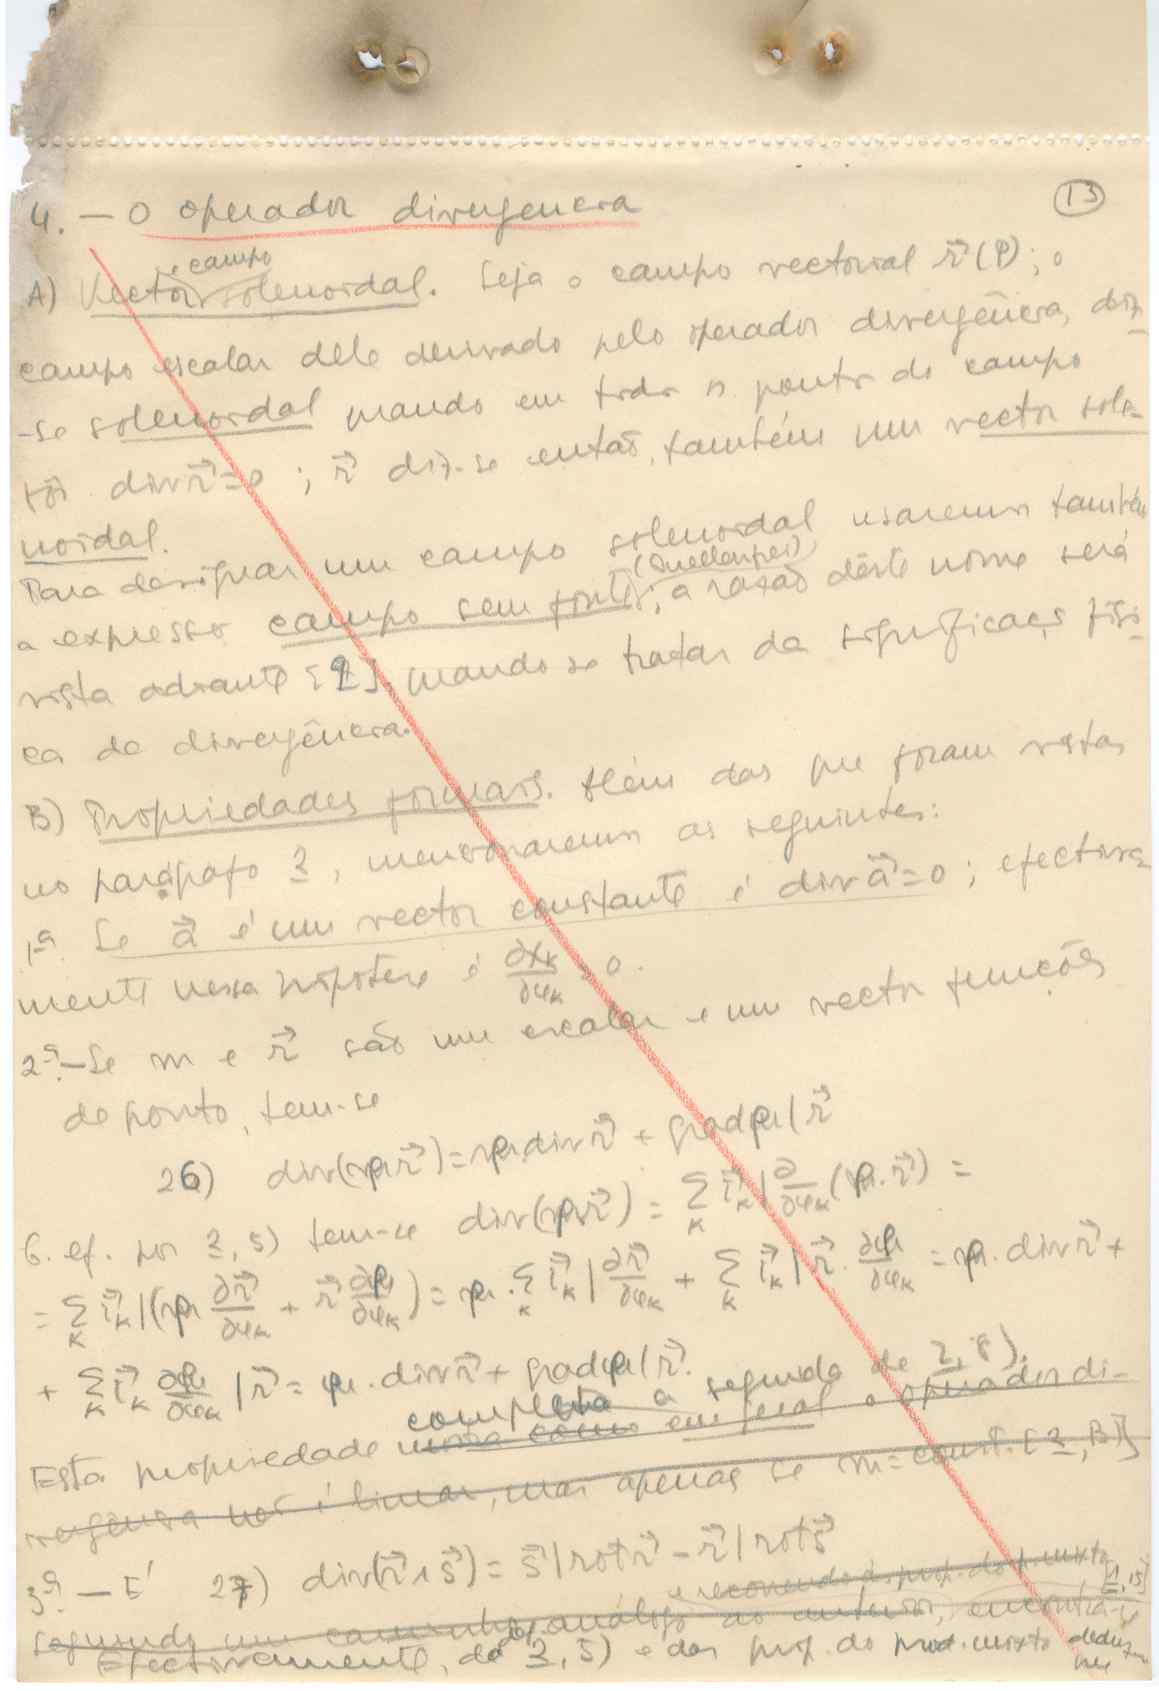 4. — O operador divergencia
13
e campo
A) Vector solenoidal. Seja o campo vectorial r⃗(P); o
campo escalar dele derivado pelo operador divergência, diz-
-se solenoidal quando em todos os pontos do campo
fôr div r⃗=0 ; r⃗ diz-se então, também um vector sole-
noidal.
Para designar um campo solenoidal usaremos também
(Quellenfrei)
a expressão campo sem fontes; a razão dêste nome será
vista adiante [2], quando se tratar da significação físi-
ca da divergência.
B) Propriedades formais. Além das que foram vistas
no parágrafo 3, mencionaremos as seguintes:
1ª. Se a⃗ é um vector constante é div a⃗=0 ; efectiva-
mente nessa hipótese é ∂x_k/∂u_k = 0.
2ª.— Se m e r⃗ são um escalar e um vector funções
de ponto, tem-se
26) div(φr⃗)=φ.div r⃗ + grad φ|r⃗
C. ef. por 3, 5) tem-se div(φr⃗) = Σ_k i⃗_k | ∂/∂u_k (φ.r⃗) =
= Σ_k i⃗_k|(φ ∂r⃗/∂u_k + r⃗ ∂φ/∂u_k) = φ. Σ_k i⃗_k | ∂r⃗/∂u_k + Σ_k i⃗_k | r⃗. ∂φ/∂u_k = φ. div r⃗ +
+ Σ_k i⃗_k ∂φ/∂u_k | r⃗ = φ. div r⃗ + grad φ|r⃗.
completa a segunda de 2, 8).
Esta propriedade mostra como em geral o operador di-
vergência não é linear, mas apenas se m=const. [3, B]
3ª.— E' 27) div(r⃗∧s⃗) = s⃗|rot r⃗ − r⃗|rot s⃗
e recorrendo às prop. do p. mixto [1, 15]
seguindo um caminho análogo ao anterior, encontra-se
Efectivamente, de 3, 5) e das prop. do prod. mixto deduz-se
que